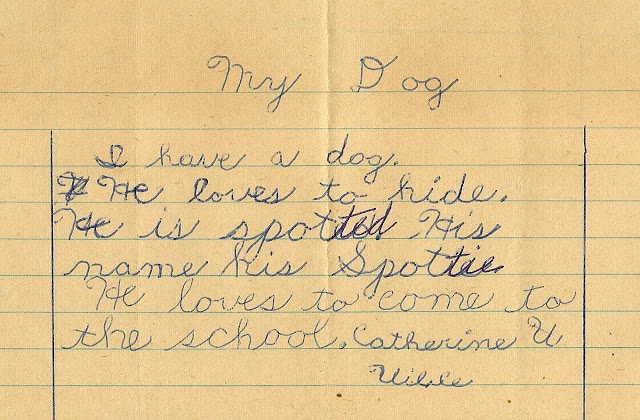 My Dog
I have a dog.
He loves to hide.
He is spotted His
name his Spottie
He loves to come to
the school. Catherine U